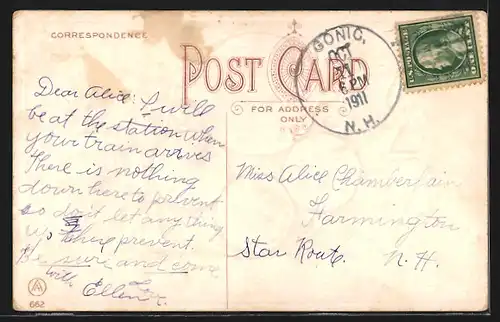 CORRESPONDENCE
POST CARD
FOR ADDRESS
ONLY
GONIC,
OCT
6 PM
1911
N.H.
U.S. POSTAGE
Dear Alice: I will
be at the station when
your train arrives
There is nothing
down here to prevent
so don't let any thing
up there prevent.
Be sure and come
with
Ellen
Miss Alice Chamberlain
Farmington
Star Route. N.H.
A
662